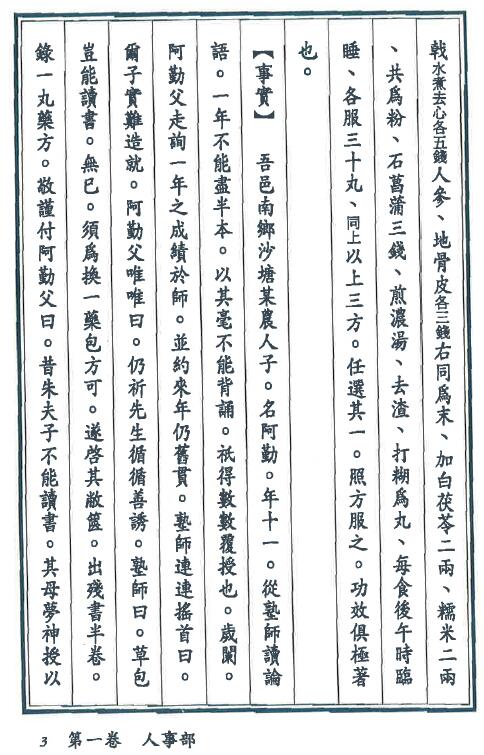 戟水煮去心各五錢人參、地骨皮各三錢右同爲末、加白茯苓二兩、糯米二兩
、共爲粉、石菖蒲三錢、煎濃湯、去渣、打糊爲丸、每食後午時臨
睡、各服三十丸、同上以上三方。任選其一。照方服之。功效俱極著
也。
【事實】　吾邑南鄉沙塘某農人子。名阿勤。年十一。從塾師讀論
語。一年不能盡半本。以其毫不能背誦。祇得數數覆授也。歲闌。
阿勤父走詢一年之成績於師。並約來年仍舊貫。塾師連連搖首曰。
爾子實難造就。阿勤父唯唯曰。仍祈先生循循善誘。塾師曰。草包
豈能讀書。無已。須爲換一藥包方可。遂啓其敝篋。出殘書半卷。
錄一丸藥方。敬謹付阿勤父曰。昔朱夫子不能讀書。其母夢神授以
3 第一卷 人事部